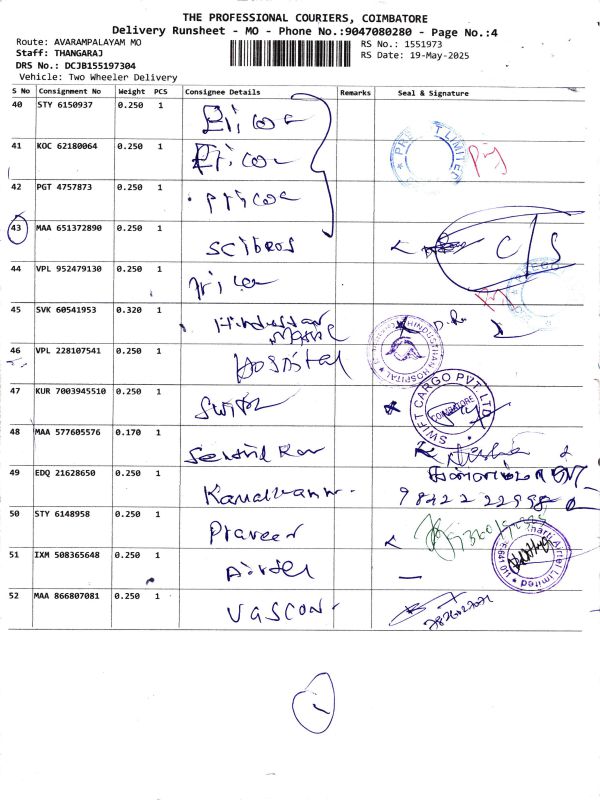 THE PROFESSIONAL COURIERS, COIMBATORE
Delivery Runsheet - MO - Phone No.:9047080280 - Page No.:4
Route: AVARAMPALAYAM MO
Staff: THANGARAJ
DRS No.: DCJB155197304
Vehicle: Two Wheeler Delivery
RS No.: 1551973
RS Date: 19-May-2025
S No Consignment No Weight PCS Consignee Details Remarks Seal & Signature
40 STY 6150937 0.250 1 Pricoc
41 KOC 62180064 0.250 1 Pricoc
42 PGT 4757873 0.250 1 Pricoc
43 MAA 651372890 0.250 1 C/S
44 VPL 952479130 0.250 1
45 SVK 60541953 0.320 1 Hindustan
46 VPL 228107541 0.250 1 Hospital
HINDUSTHAN HOSPITAL
47 KUR 7003945510 0.250 1 Swift
SWIFT CARGO PVT. LTD.
COIMBATORE
48 MAA 577605576 0.170 1
49 EDQ 21628650 0.250 1
98422 22998
50 STY 6148958 0.250 1 Praveen
51 IXM 508365648 0.250 1 Airtel
Bharti Airtel Limited
52 MAA 866807081 0.250 1 VASCON